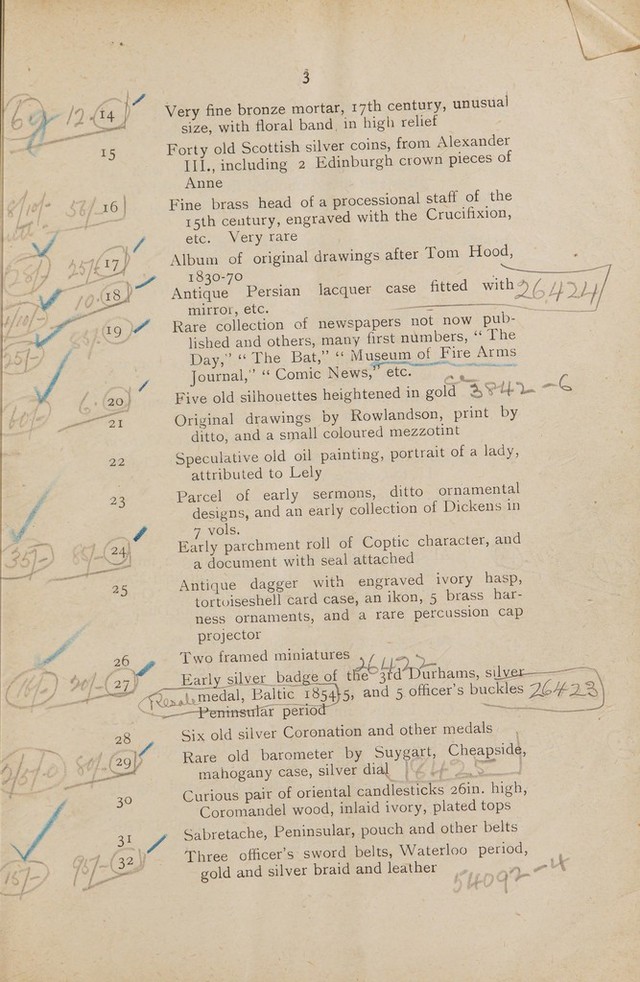 3
12. 14 Very fine bronze mortar, 17th century, unusual
size, with floral band in high relief
15 Forty old Scottish silver coins, from Alexander
III., including 2 Edinburgh crown pieces of
Anne
16 Fine brass head of a processional staff of the
15th century, engraved with the Crucifixion,
etc. Very rare
17 Album of original drawings after Tom Hood,
1830-70
10. 18 Antique Persian lacquer case fitted with 26424
mirror, etc.
19 Rare collection of newspapers not now pub-
lished and others, many first numbers, “ The
Day,” “ The Bat,” “ Museum of Fire Arms
Journal,” “ Comic News,” etc.
6. 20 Five old silhouettes heightened in gold 3842-6
21 Original drawings by Rowlandson, print by
ditto, and a small coloured mezzotint
22 Speculative old oil painting, portrait of a lady,
attributed to Lely
23 Parcel of early sermons, ditto ornamental
designs, and an early collection of Dickens in
7 vols.
35/- 85/- 24 Early parchment roll of Coptic character, and
a document with seal attached
25 Antique dagger with engraved ivory hasp,
tortoiseshell card case, an ikon, 5 brass har-
ness ornaments, and a rare percussion cap
projector
26 Two framed miniatures 26422
27 Early silver badge of the 3rd Durhams, silver
medal, Baltic 1854-5, and 5 officer's buckles 26423
Peninsular period
28 Six old silver Coronation and other medals
29 Rare old barometer by Suygart, Cheapside,
mahogany case, silver dial 18425
30 Curious pair of oriental candlesticks 26in. high,
Coromandel wood, inlaid ivory, plated tops
31 Sabretache, Peninsular, pouch and other belts
15/- 95/- 32 Three officer's sword belts, Waterloo period,
gold and silver braid and leather 54092-4